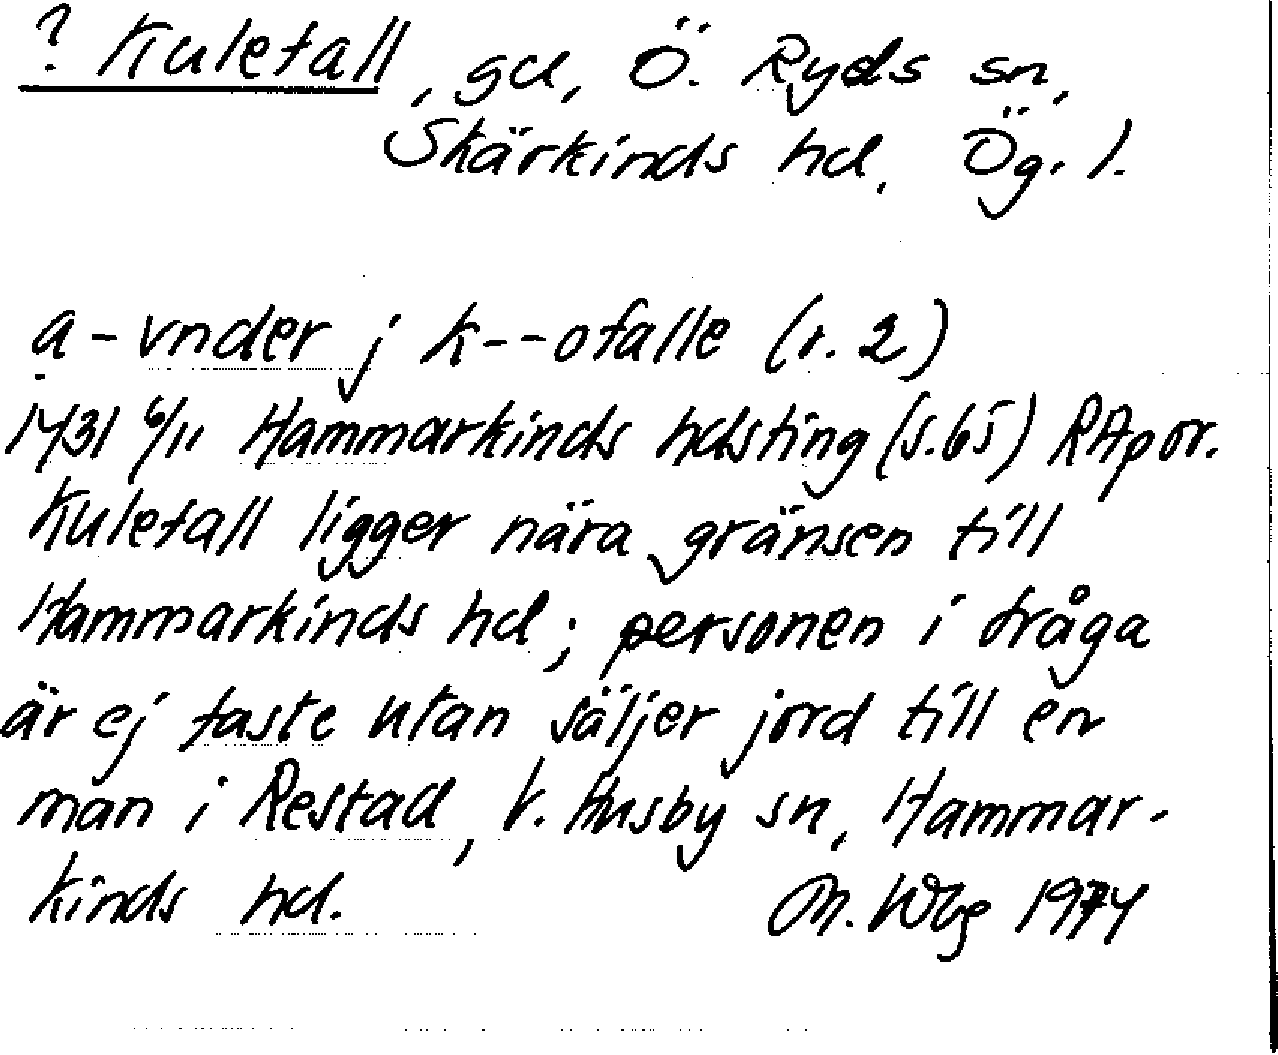 ? Kulefall, gd, Ö. Ryds sn,
Skärkinds hd, Ög. l.
a-vnder j k--ofalle (r. 2)
1431 6/11 Hammarkinds hdsting (s.65) RApor.
Kulefall ligger nära gränsen till
Hammarkinds hd; personen i fråga
är ej faste utan säljer jord till en
man i Restad, V. Husby sn, Hammar-
kinds hd. M. Wbg 1974